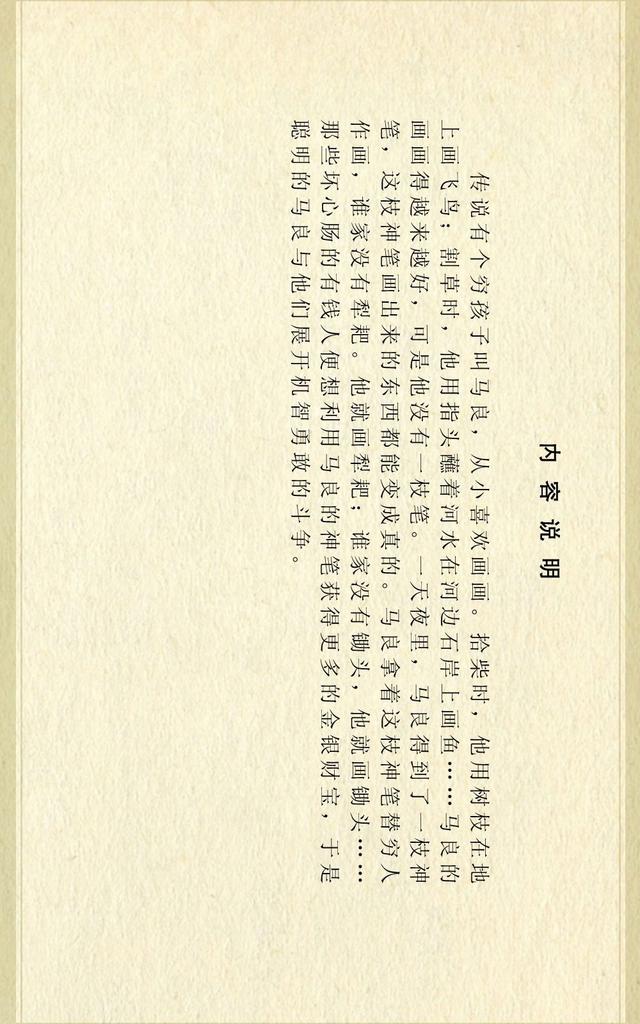 内容说明
传说有个穷孩子叫马良，从小喜欢画画。拾柴时，他用树枝在地
上画飞鸟；割草时，他用指头蘸着河水在河边石岸上画鱼……马良的
画画得越来越好，可是他没有一枝笔。一天夜里，马良得到了一枝神
笔，这枝神笔画出来的东西都能变成真的。马良拿着这枝神笔替穷人
作画，谁家没有犁耙。他就画犁耙；谁家没有锄头，他就画锄头……
那些坏心肠的有钱人便想利用马良的神笔获得更多的金银财宝，于是
聪明的马良与他们展开机智勇敢的斗争。